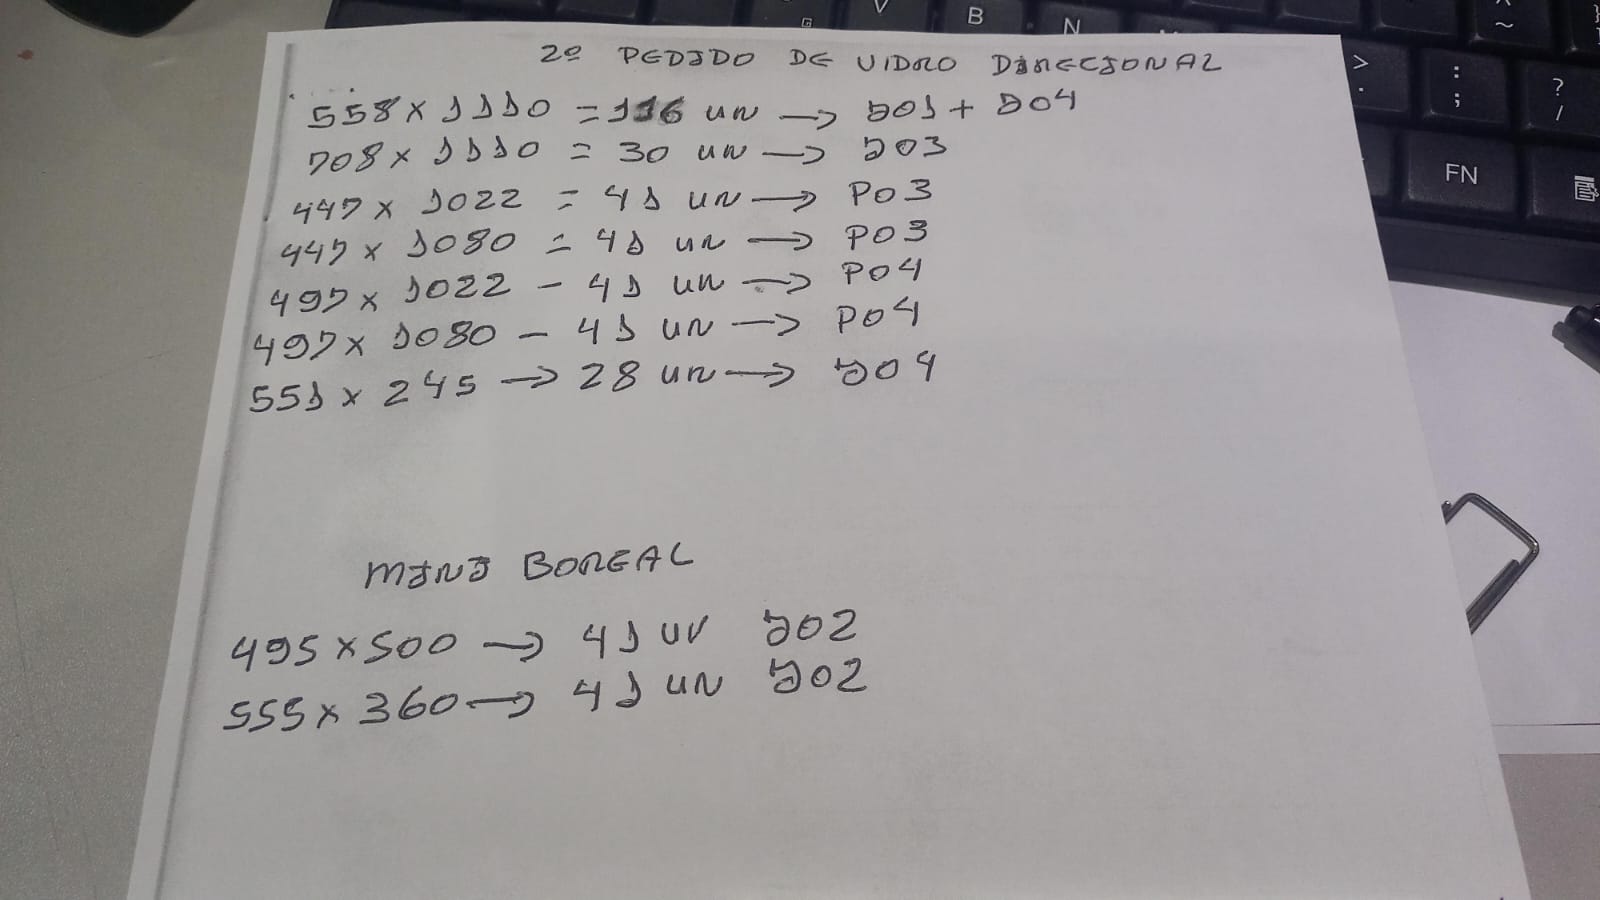 2º PEDIDO DE VIDRO DIRECIONAL
558 x 1110 = 116 UN → J01 + J04
708 x 1110 = 30 UN → J03
447 x 1022 = 41 UN → P03
447 x 1080 = 41 UN → P03
497 x 1022 - 41 UN → P04
497 x 1080 - 41 UN → P04
551 x 245 → 28 UN → J04
MINI BOREAL
495 x 500 → 41 UN J02
555 x 360 → 41 UN J02
B
N
V
FN